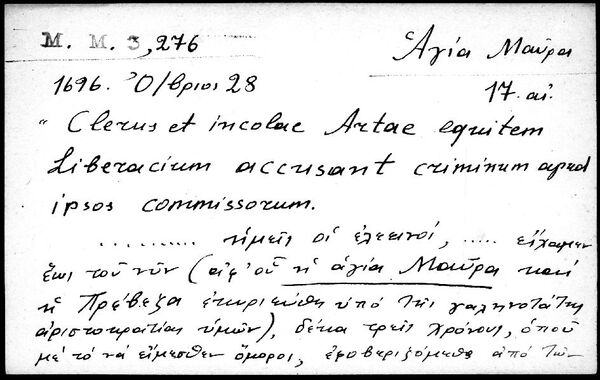 M. M. 3,276
Ἁγία Μαῦρα
1696. Ὀ/βριος 28
17. αἰ.
" Clerus et incolae Artae equitem
Liberacium accusant criminum apud
ipsos commissorum.
.......... ἡμεῖς οἱ ἐλεεινοί, ..... εἴχαμεν
ἕως τοῦ νῦν (ἀφ' οὗ ἡ ἁγία Μαῦρα καὶ
ἡ Πρέβεζα ἐκυριεύθη ὑπὸ τῆς γαληνοτάτης
ἀριστοκρατίας ὑμῶν), δέκα τρεῖς χρόνους, ὁποῦ
μὲ τὸ νὰ εἴμεσθεν ὅμοροι, ἐφοβεριζόμεθα ἀπὸ τῶν